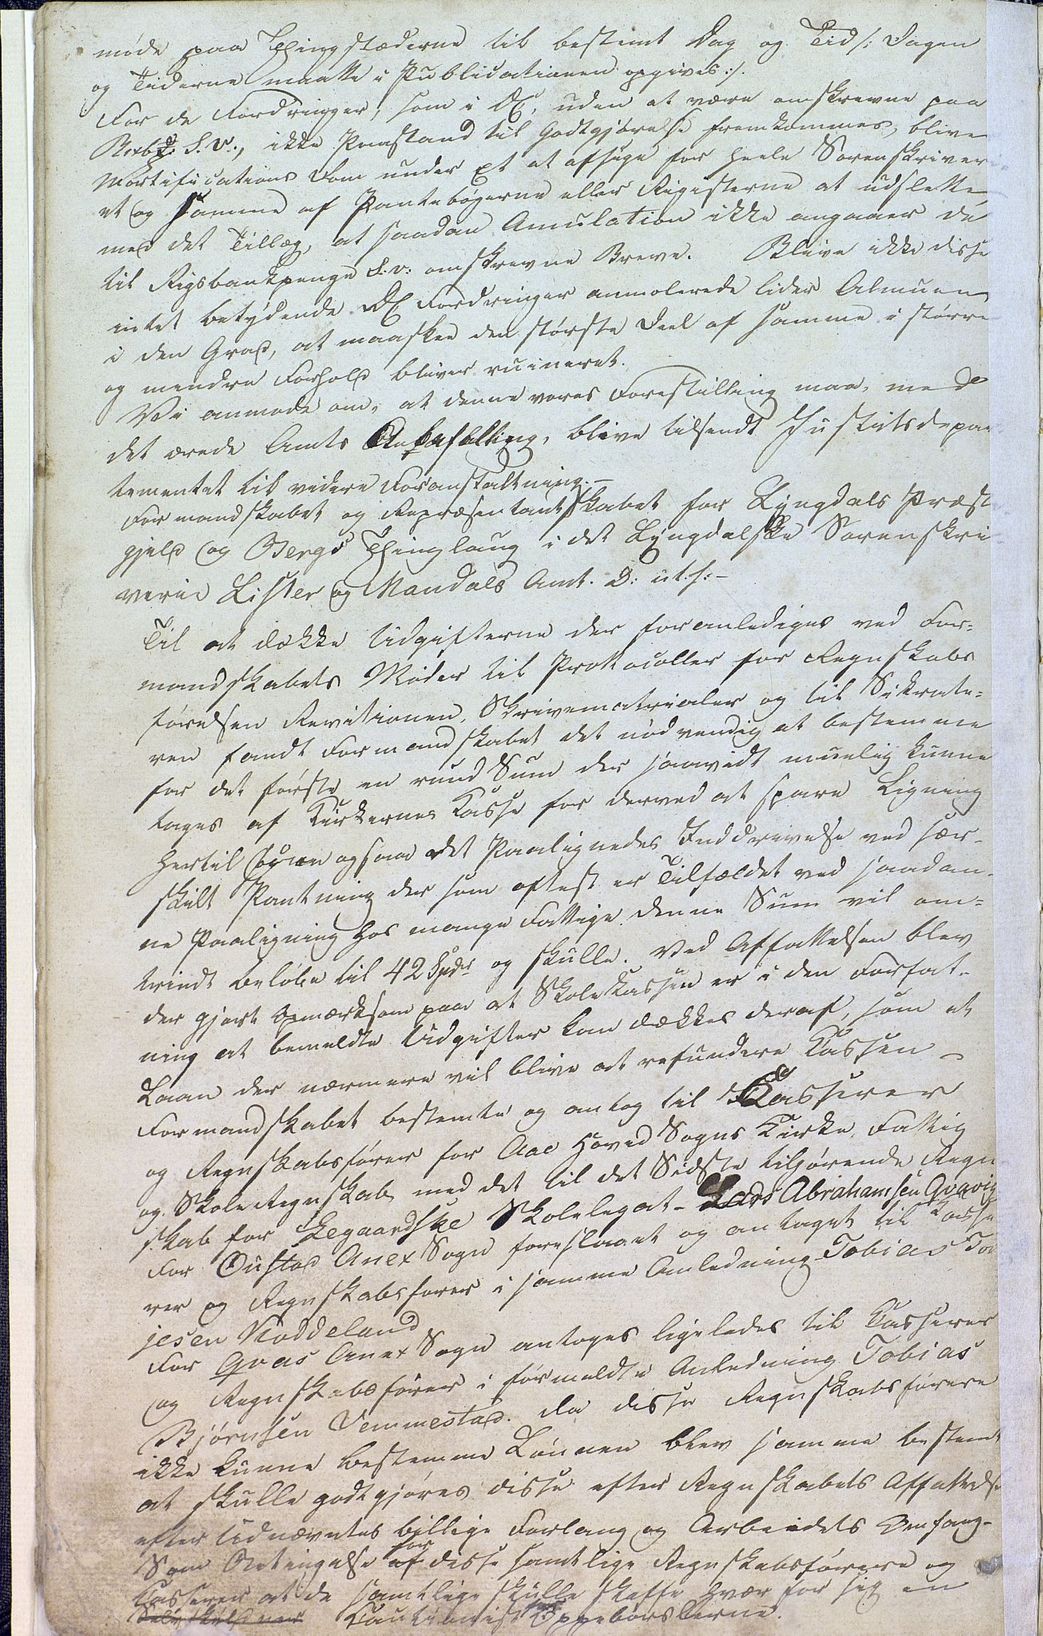 møde paa Thingstæderne til bestimt Dag og Tid /: Dagen
og Tiderne maatte i Publicationen opgives:/.
For de Fordringer, som i DC, uden at være omskrevne paa
Rbd. S.V., ikke Paastand til Godtgjørelse fremkommer, blive
Mortifications Dom under et at afsige for heele Sorenskriver
et og samme af Pantebøgerne eller Registerne at udslette
med det Tillæg, at saadan Anulation ikke angaaer de
til Rigsbankpenge S.v. omskrevne Breve. Blive ikke disse
intet betydende DC Fordringer annulerede lider Almuen
i den Grad, at maaskee den største Deel af samme i større
og mindre Forhold bliver ruineret.
Vi anmode om, at denne vores Forestilling maa, med
det ærede Amts Anbefalling, blive tilsendt Justitsdepar
tementet til videre Foranstaltning.-
Formandskabet og Repræsentantskabet for Lyngdals Præste
gjeld og Bergs Thinglaug i det Lyngdalske Sorenskri
verie Lister og Mandals Amt. D: ut:s:-
Til at dække Udgifterne der foranlediges ved For-
mandskabets Møder til Protocoller for Regnskabs
førelsen Revitionen, Skrivematrialer og til Sikrate-
ren fandt Formandskabet det nødvendig at bestemme
for det første en rund Sum der saavidt muelig kunne
tages af Kirkernes Kasse for derved at spare Ligning
hertil som ogsaa det Paalignedes Inddrivelse ved sær-
skilt Pantning der som oftest er Tilfældet ved saadan-
ne Paaligning hos mange Fattige denne Sum vil om-
trindt beløbe til 42 Spd og skulle. Ved Affattelsen blev
der gjort opmærksom paa at Skolekassen er i den Forfat-
ning at bemeldte Udgifter kan dækkes deraf, som et
Laan der nærmere vil blive at refundere Kassen -
Formandskabet bestemte og antog til Kasserer
og Regnskabsfører for Aae Hoved Sogns Kirke, Fattig
og Skole Regnskab, med det til det Sidste tilhørende Regn
skab for Legaardske Skolelegat - Lars Abrahamsen Qvavig
For Ousta​d Anex Sogn foreslaaet og antaget til Kasse
rer og Regnskabsfører i samme Anledning Tobias Tor
jesen Noddeland
For Qvaas Anex Sogn antoges ligeledes til Kasserer
og Regnskabsfører i formeldte Anledning Tobias
Bjørnsen Vemmestad. da disse Regnskabsførere
ikke kunne bestemme Lønnen blev samme bestemt
at skulle godtgjøres disse efter Regnskabets Affattelse
efter Udnævntes billige Forlang og Arbeidets Omfang-
Som Betingelse for af disse samtlige Regnskabsførere og
Kasserer at de samtlige skulle skaffe hvær for sig en
Kautionist for Oppebørslerne.